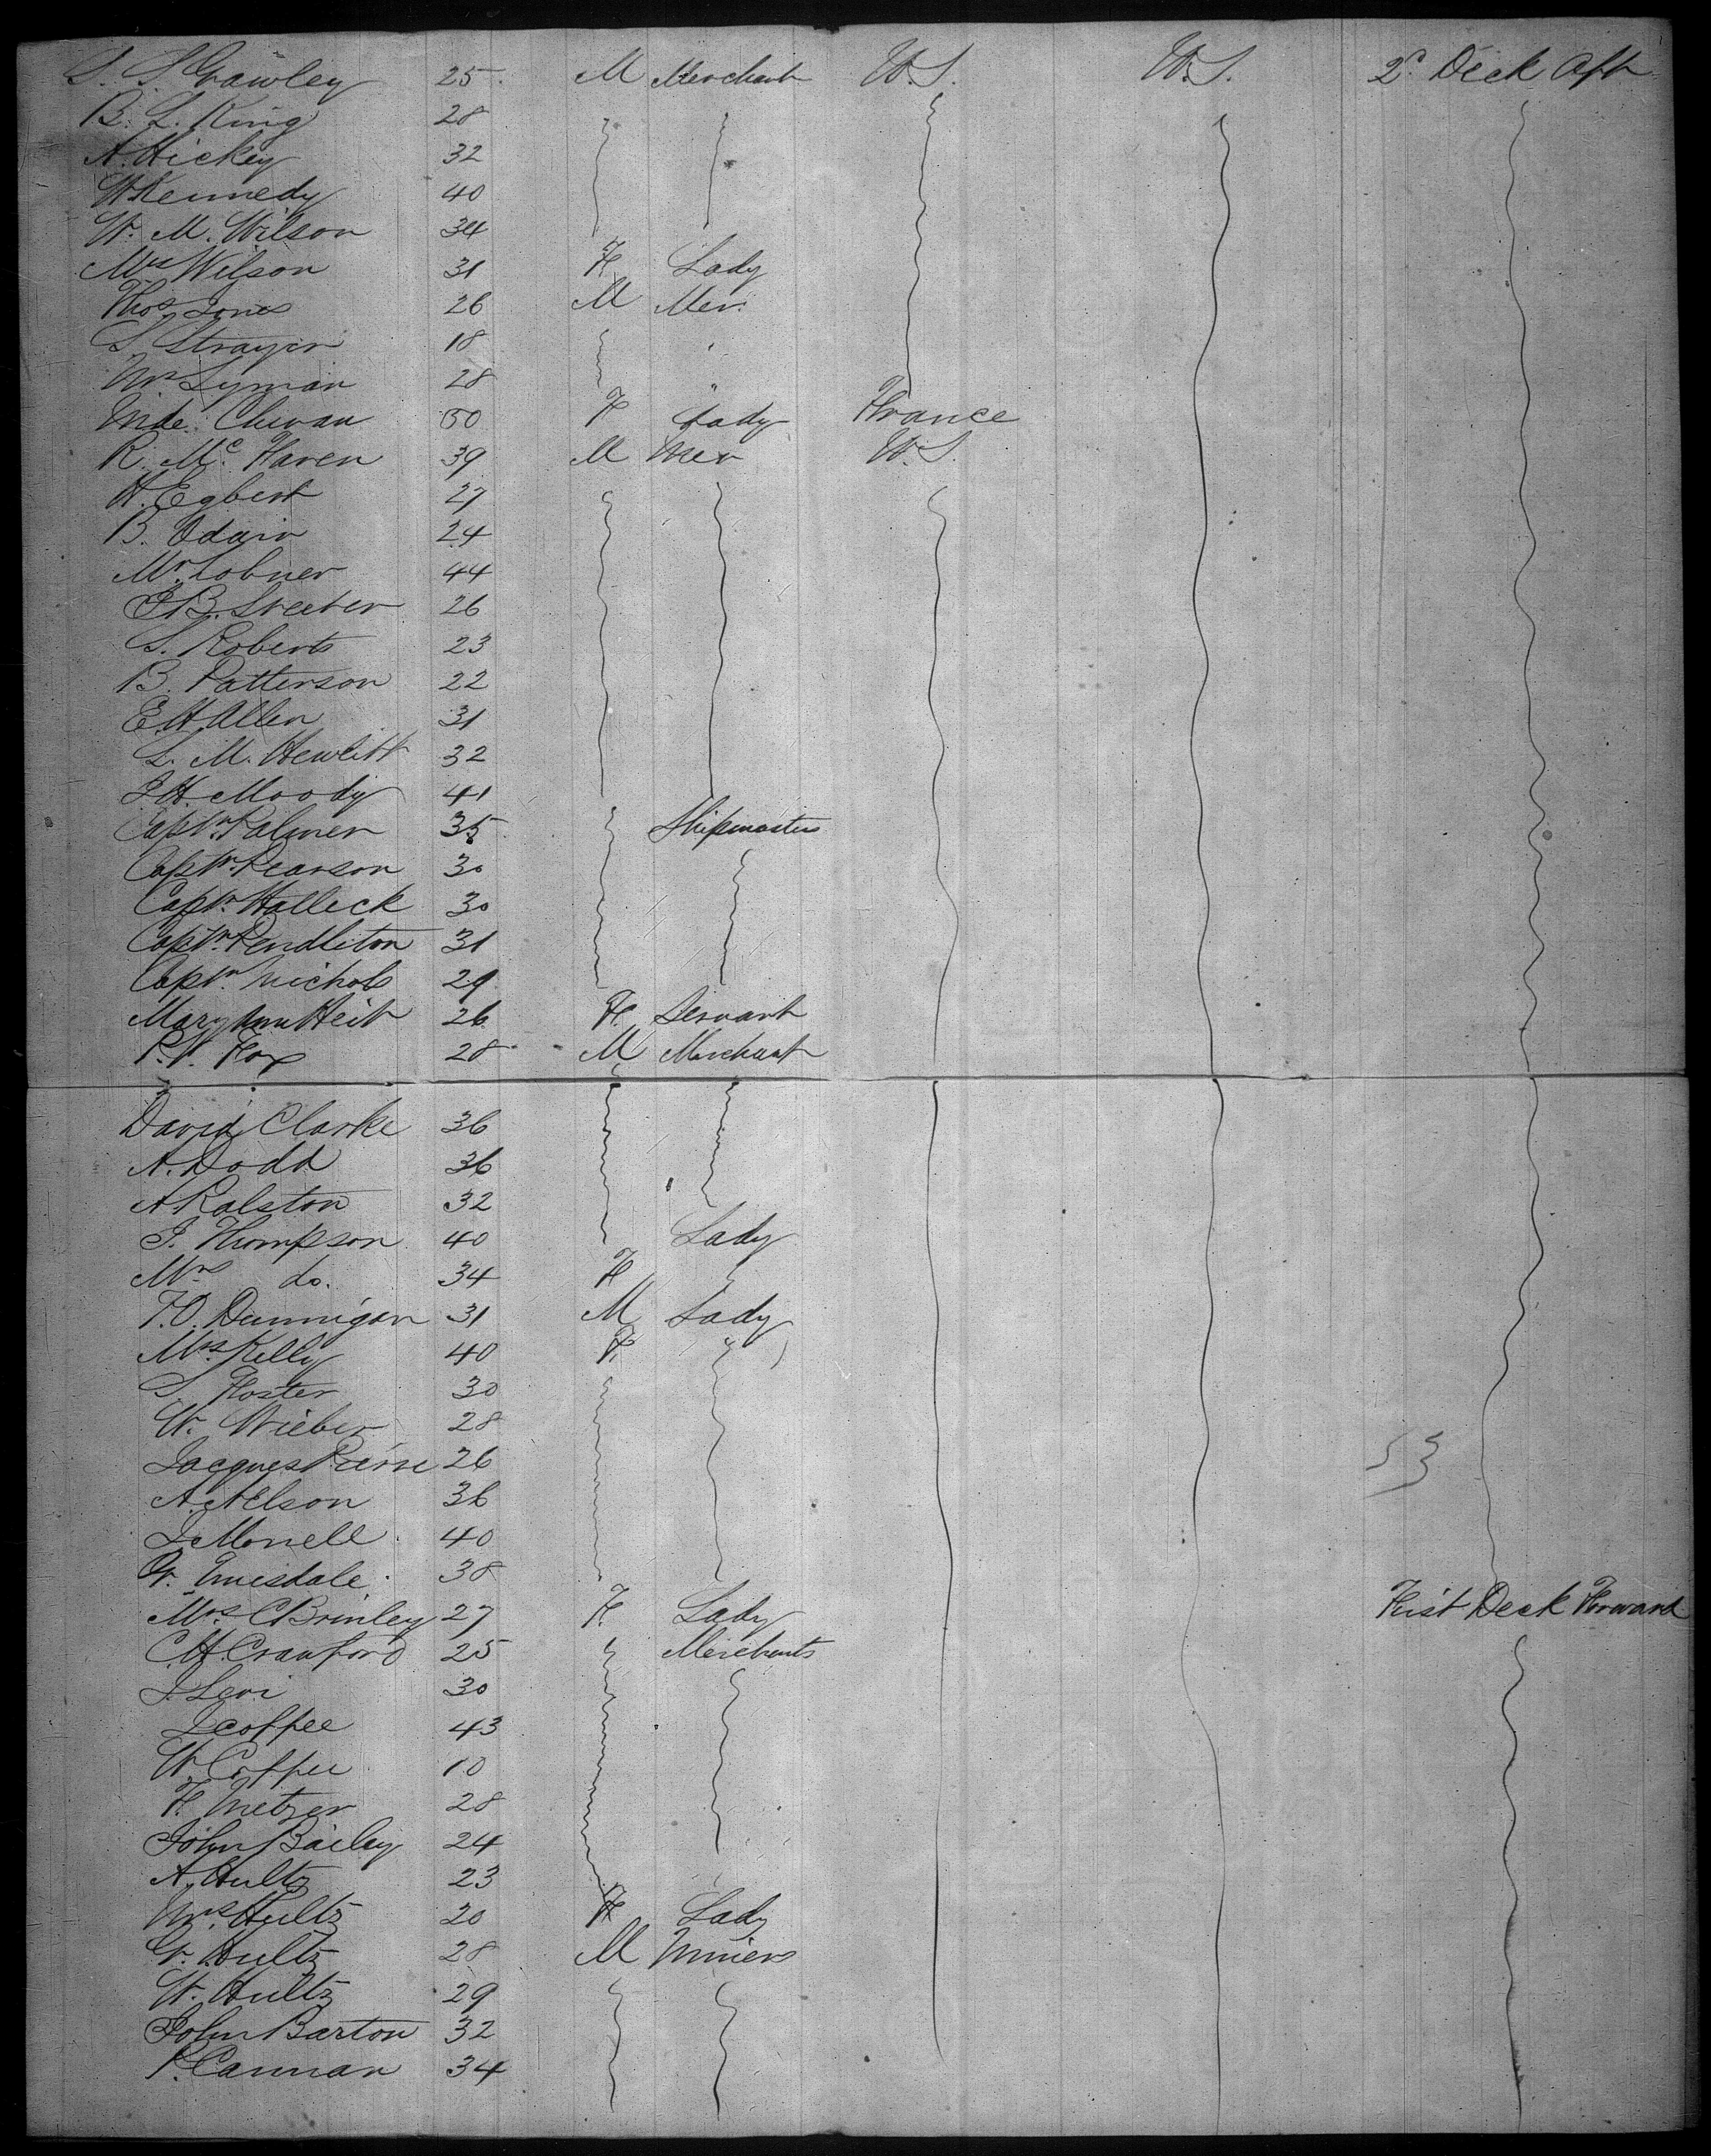 S. S. Crawley 25 M Merchant U.S. U.S. 2d Deck Aft
B. L. King 28
A. Hickey 32
W Kennedy 40
W. M. Wilson 34
Mrs Wilson 31 F Lady
Thos Jones 26 M Mer.
S. Strayer 18 "
Wm Lyman 28 "
Mde. Chevau 50 F Lady France
R. Mc Haren 39 M Mer U.S.
H. Egbert 27
B. Adair 24
Mr. Lobner 44
J B. Streeter 26
S. Roberts 23
B. Patterson 22
E. H Allen 31
L. M. Hewlitt 32
J H. Moody 41
Captn. Palmer 35 Shipmaster
Captn. Pearson 30
Captn. Halleck 30
Captn. Pendleton 31
Captn. Nichols 29
Mary Ann Heit 26 F. Servant
P. V. Fox 28 M Merchant
David Clarke 36
A. Dodd 36
A Ralston 32
J. Thompson 40 Lady
Mrs do. 34 F
T. O. Dunnigan 31 M Lady
Mrs. Kelly 40 F.
S. Foster 30
W. Wieber 28
Jacques Pierre 26
A. Nelson 36 53
J. Monell 40
G. 38
Mrs C Brinley 27 F. Lady First Deck Forward
C. H. Crawford 25 Merchants
J. Levi 30
J Coffee 43
W. Coffee 10
F. Metzer 28
John Bailey 24
A. Hultz 23
Mrs. Hultz 20 F Lady
G. Hultz 28 M Miners
W. Hultz 29
John Barton 32
P. Cannan 34